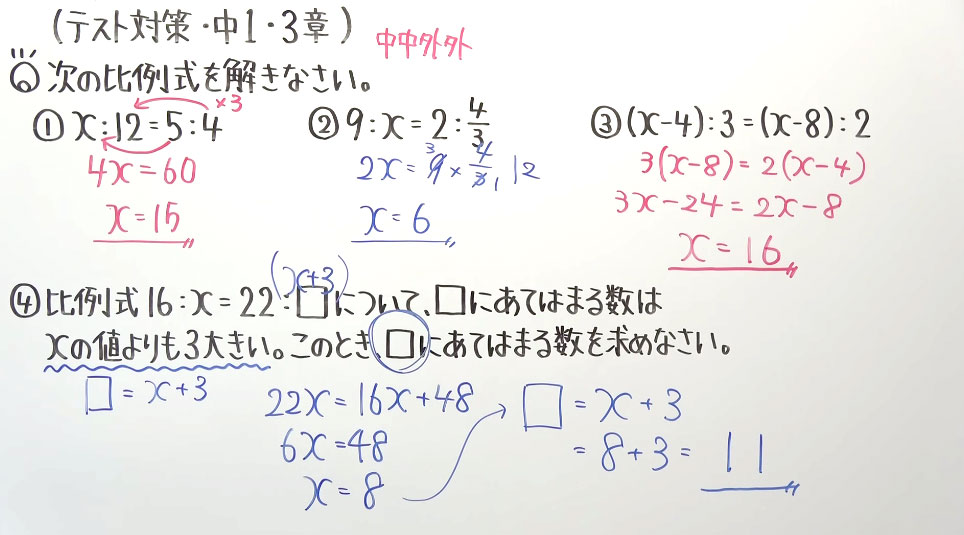 (テスト対策・中1・3章)
中中外外
Q 次の比例式を解きなさい。
×3
① x:12=5:4
4x=60
x=15
② 9:x=2:4/3
2x=9×4/3 12
3 1
x=6
③ (x-4):3=(x-8):2
3(x-8)=2(x-4)
3x-24=2x-8
x=16
(x+3)
④ 比例式16:x=22:□について、□にあてはまる数は
xの値よりも3大きい。このとき、□にあてはまる数を求めなさい。
□=x+3
22x=16x+48
6x=48
x=8
□=x+3
=8+3=11